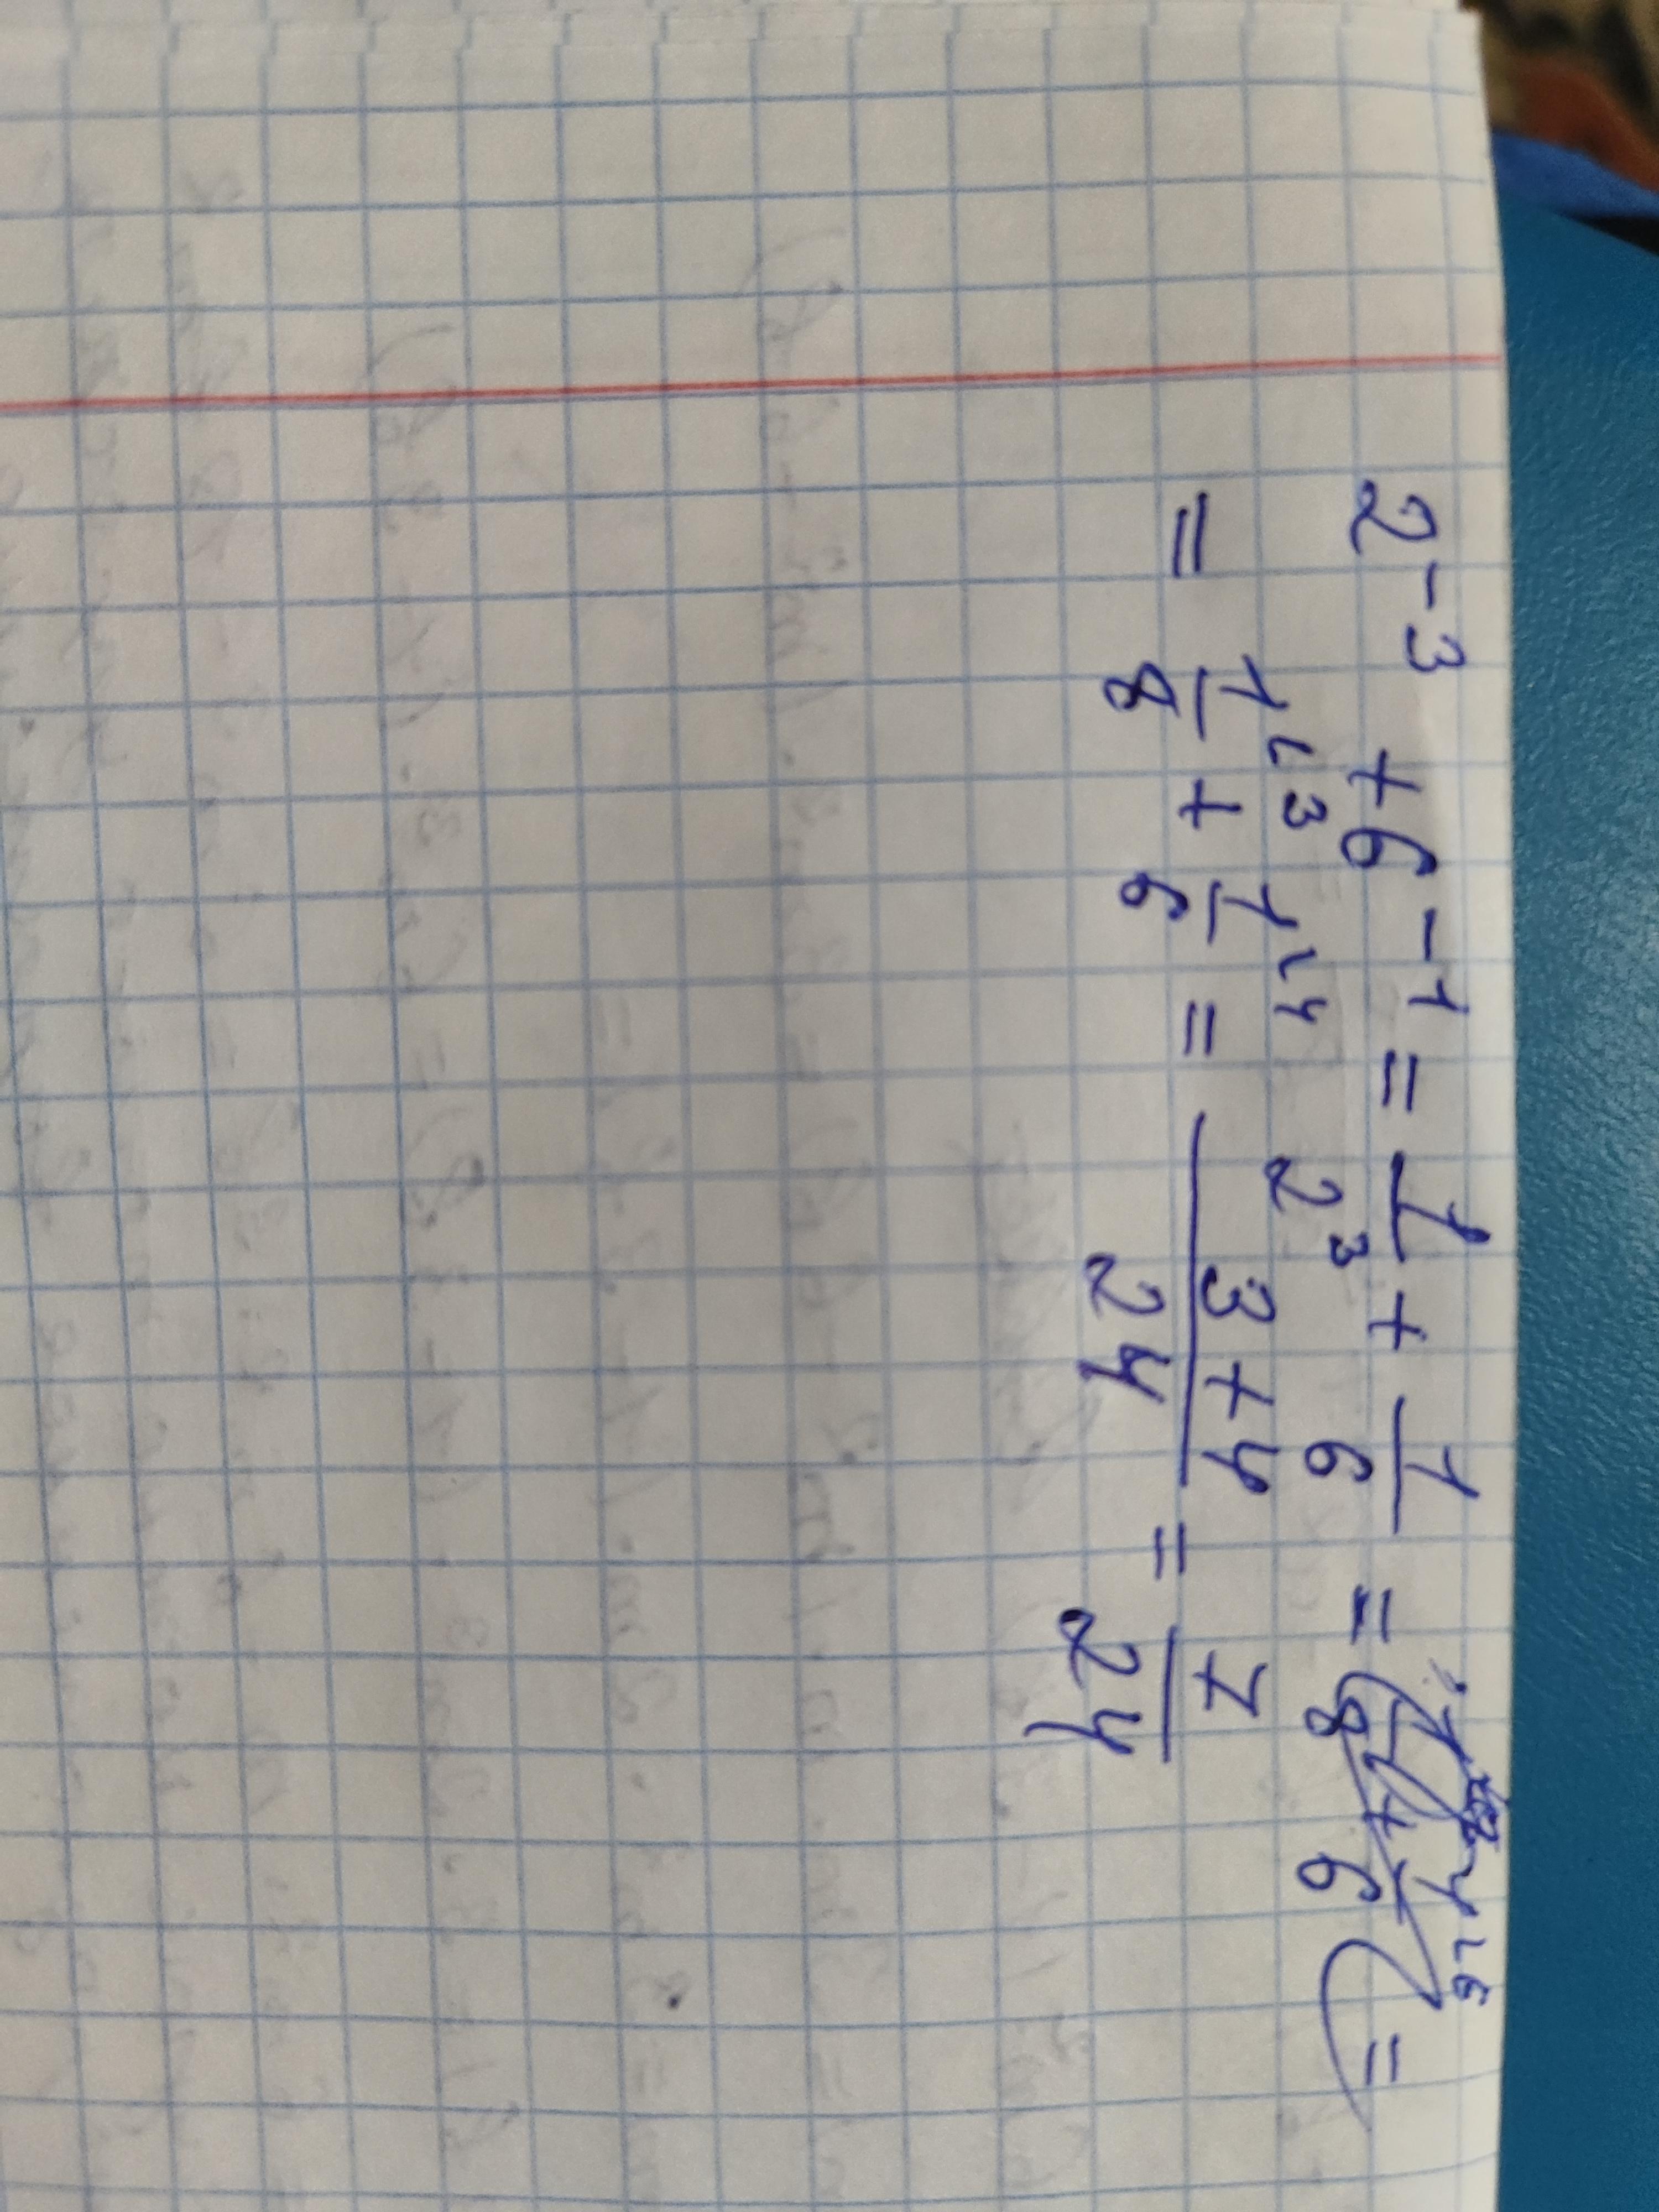 2⁻³ + 6⁻¹ = 1/2³ + 1/6 = 1/8 + 1/6 =
= 1/8 ⌊3 + 1/6 ⌊4 = (3+4)/24 = 7/24